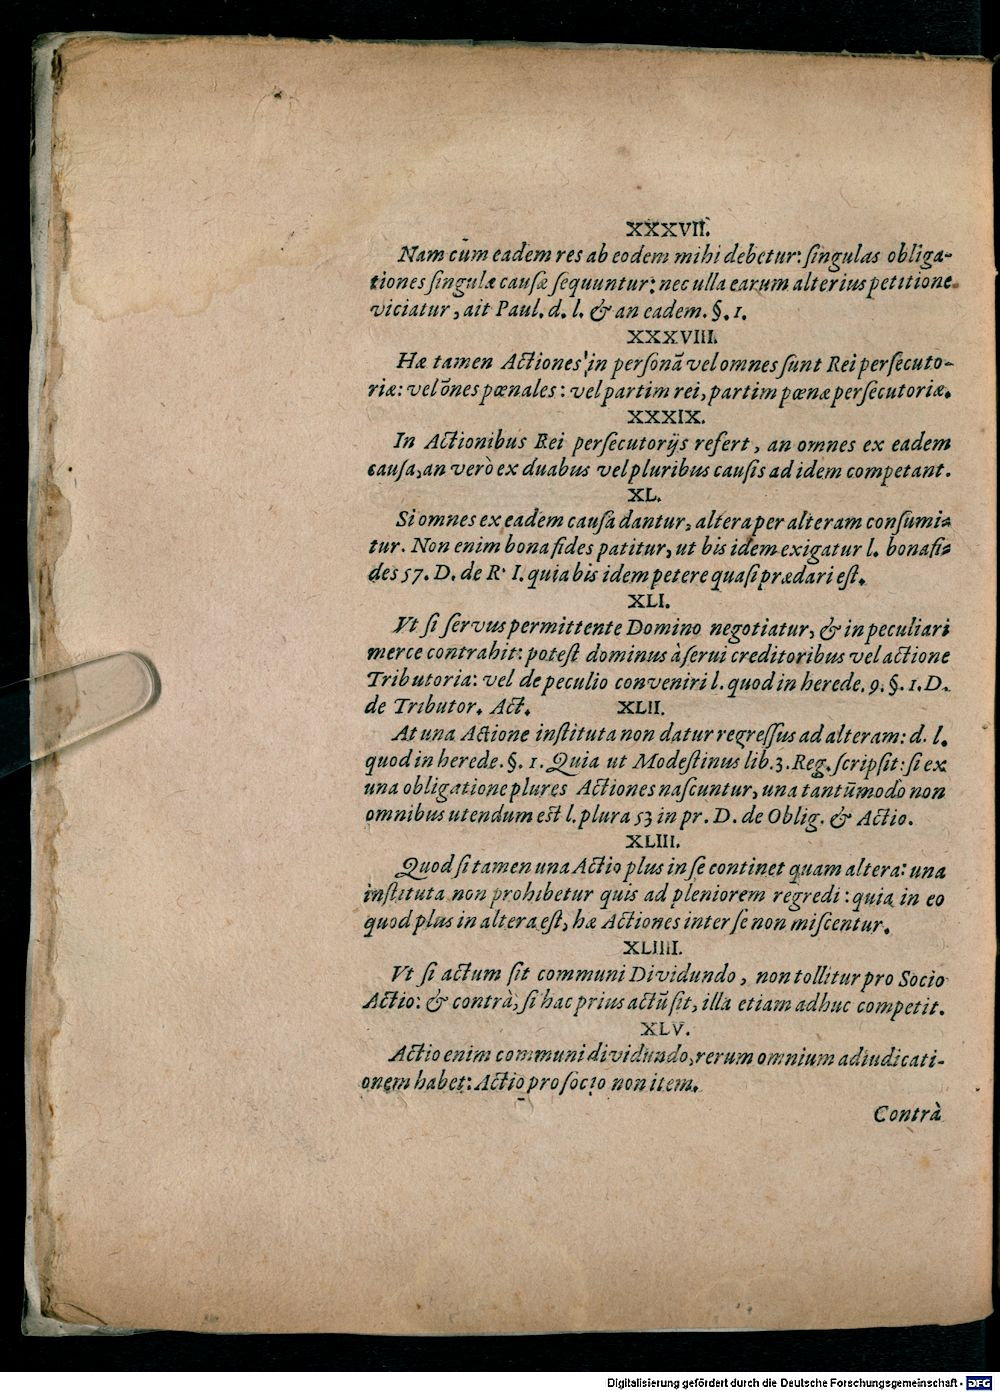 XXXVII.
Nam cũm eadem res ab eodem mihi debetur: ſingulas obliga-
tiones ſingulæ cauſæ ſequuntur: nec ulla earum alterius petitione
viciatur, ait Paul. d. l. & an eadem. §. 1.
XXXVIII.
Hæ tamen Actiones in perſonã vel omnes ſunt Rei perſecuto-
riæ: vel õnes pœnales: vel partim rei, partim pœnæ perſecutoriæ.
XXXIX.
In Actionibus Rei perſecutorijs refert, an omnes ex eadem
cauſa, an verò ex duabus vel pluribus cauſis ad idem competant.
XL.
Si omnes ex eadem cauſa dantur, altera per alteram conſumi-
tur. Non enim bona fides patitur, ut bis idem exigatur l. bona fi-
des 57. D. de R. I. quia bis idem petere quaſi prædari eſt.
XLI.
Vt ſi ſervus permittente Domino negotiatur, & in peculiari
merce contrahit: poteſt dominus à ſerui creditoribus vel actione
Tributoria: vel de peculio conveniri l. quod in herede. 9. §. 1. D.
de Tributor. Act. XLII.
At una Actione inſtituta non datur regreſſus ad alteram: d. l.
quod in herede. §. 1. Quia ut Modeſtinus lib. 3. Reg. ſcripſit: ſi ex
una obligatione plures Actiones naſcuntur, una tantũmodo non
omnibus utendum eſt l. plura 53 in pr. D. de Oblig. & Actio.
XLIII.
Quod ſi tamen una Actio plus in ſe continet quam altera: una
inſtituta non prohibetur quis ad pleniorem regredi: quia in eo
quod plus in altera eſt, hæ Actiones inter ſe non miſcentur.
XLIIII.
Vt ſi actum ſit communi Dividundo, non tollitur pro Socio
Actio: & contrà, ſi hac prius actũ ſit, illa etiam adhuc competit.
XLV.
Actio enim communi dividundo, rerum omnium adiudicati-
onem habet: Actio pro ſocio non item.
Contrà
Digitalisierung gefördert durch die Deutsche Forschungsgemeinschaft - DFG